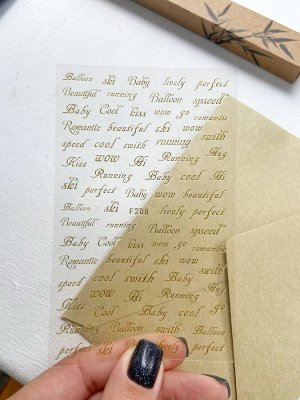 Balloon ski Baby lively perfect
Beautiful running Balloon spseed
Baby Cool kiss wow go romantic
Romantic beautiful ski wow
speed cool swith running swith
Kiss wow Hi Running Hug
Running Baby cool Hi
ski perfect Baby wow beautiful
Balloon ski F208 lively perfect
Beautiful running Balloon spseed
Baby Cool kiss wow go romantic
Romantic beautiful ski wow
speed cool swith Baby swith
Kiss wow Hi Running Hug
Cool Baby cool go
Running Balloon swith Balloon
perfect ski Baby lively perfect